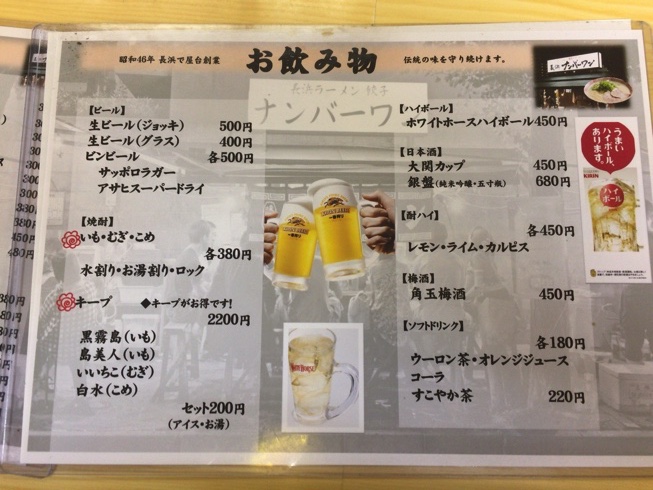 昭和46年 長浜で屋台創業
お飲み物
伝統の味を守り続けます。
長浜
ナンバーワン
長浜ラーメン 餃子
ナンバーワ
【ビール】
生ビール(ジョッキ) 500円
生ビール(グラス) 400円
ビンビール 各500円
サッポロラガー
アサヒスーパードライ
【焼酎】
いも・むぎ・こめ
各380円
水割り・お湯割り・ロック
キープ ◆キープがお得です!
2200円
黒霧島(いも)
島美人(いも)
いいちこ(むぎ)
白水(こめ)
セット200円
(アイス・お湯)
【ハイボール】
ホワイトホースハイボール450円
【日本酒】
大関カップ 450円
銀盤(純米吟醸・五寸瓶) 680円
【酎ハイ】
各450円
レモン・ライム・カルピス
【梅酒】
角玉梅酒 450円
【ソフトドリンク】
各180円
ウーロン茶・オレンジジュース
コーラ
すこやか茶 220円
うまい
ハイボール、
あります。
KIRIN
ハイ
ボール